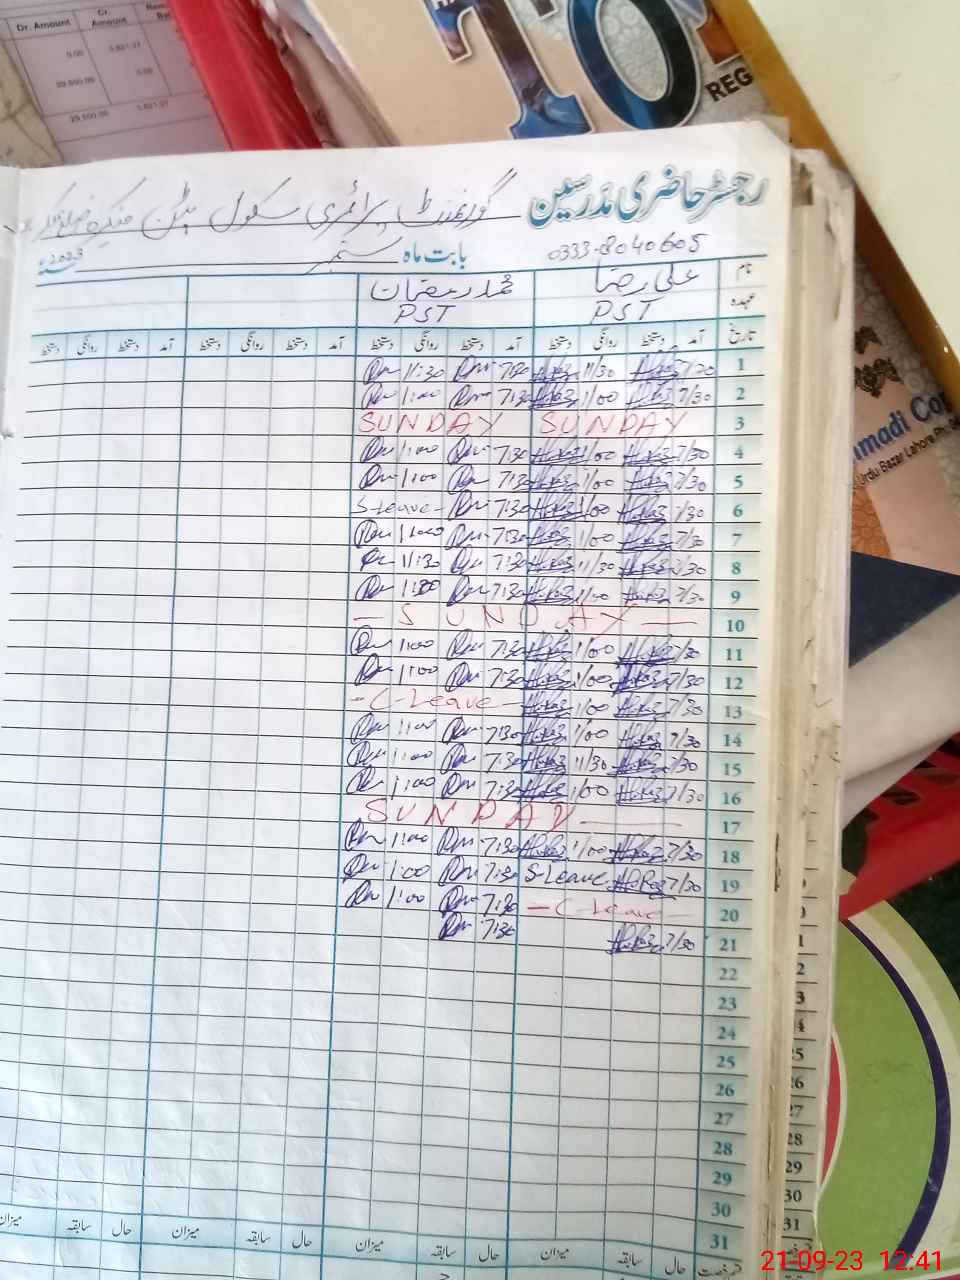 Dr. Amount Cr. Amount
0.00 5,821.21
29,500.00 0.00
29,500.00 5,821.21
REG
رجسٹر حاضری مدرسین گورنمنٹ پرائمری سکول
0333-8040605
بابت ماہ ستمبر 2023ء
نام علی رضا محمد رمضان
عہدہ PST PST
تاریخ آمد دستخط روانگی دستخط آمد دستخط روانگی دستخط آمد دستخط روانگی دستخط آمد دستخط روانگی دستخط
1 7/20 11/30 7:30 11:30
2 7/30 1/00 7:30 1:00
3 SUNDAY SUNDAY
4 7/30 1/00 7:30 1:00
5 7/30 1/00 7:30 1:00
6 7/30 1/00 7:30 S-leave
7 7/30 1/00 7:30 1:00
8 7/30 11/30 7:30 11:30
9 7/30 1/00 7:30 1:00
10 — SUNDAY —
11 7/30 1/00 7:30 1:00
12 7/30 1/00 7:30 1:00
13 7/30 1/00 - C-Leave -
14 7/30 1/00 7:30 1:00
15 7/30 11/30 7:30 1:00
16 7/30 1/00 7:30 1:00
17 SUNDAY —
18 7/30 1/00 7:30 1:00
19 7/30 S-Leave 7:30 1:00
20 — C-Leave — 7:30 1:00
21 7/30 7:30
22
23
24
25
26
27
28
29
30
31
حال سابقہ میزان حال سابقہ میزان حال سابقہ میزان حال سابقہ میزان
madi Co
Urdu Bazar Lahore Ph
21-09-23 12:41